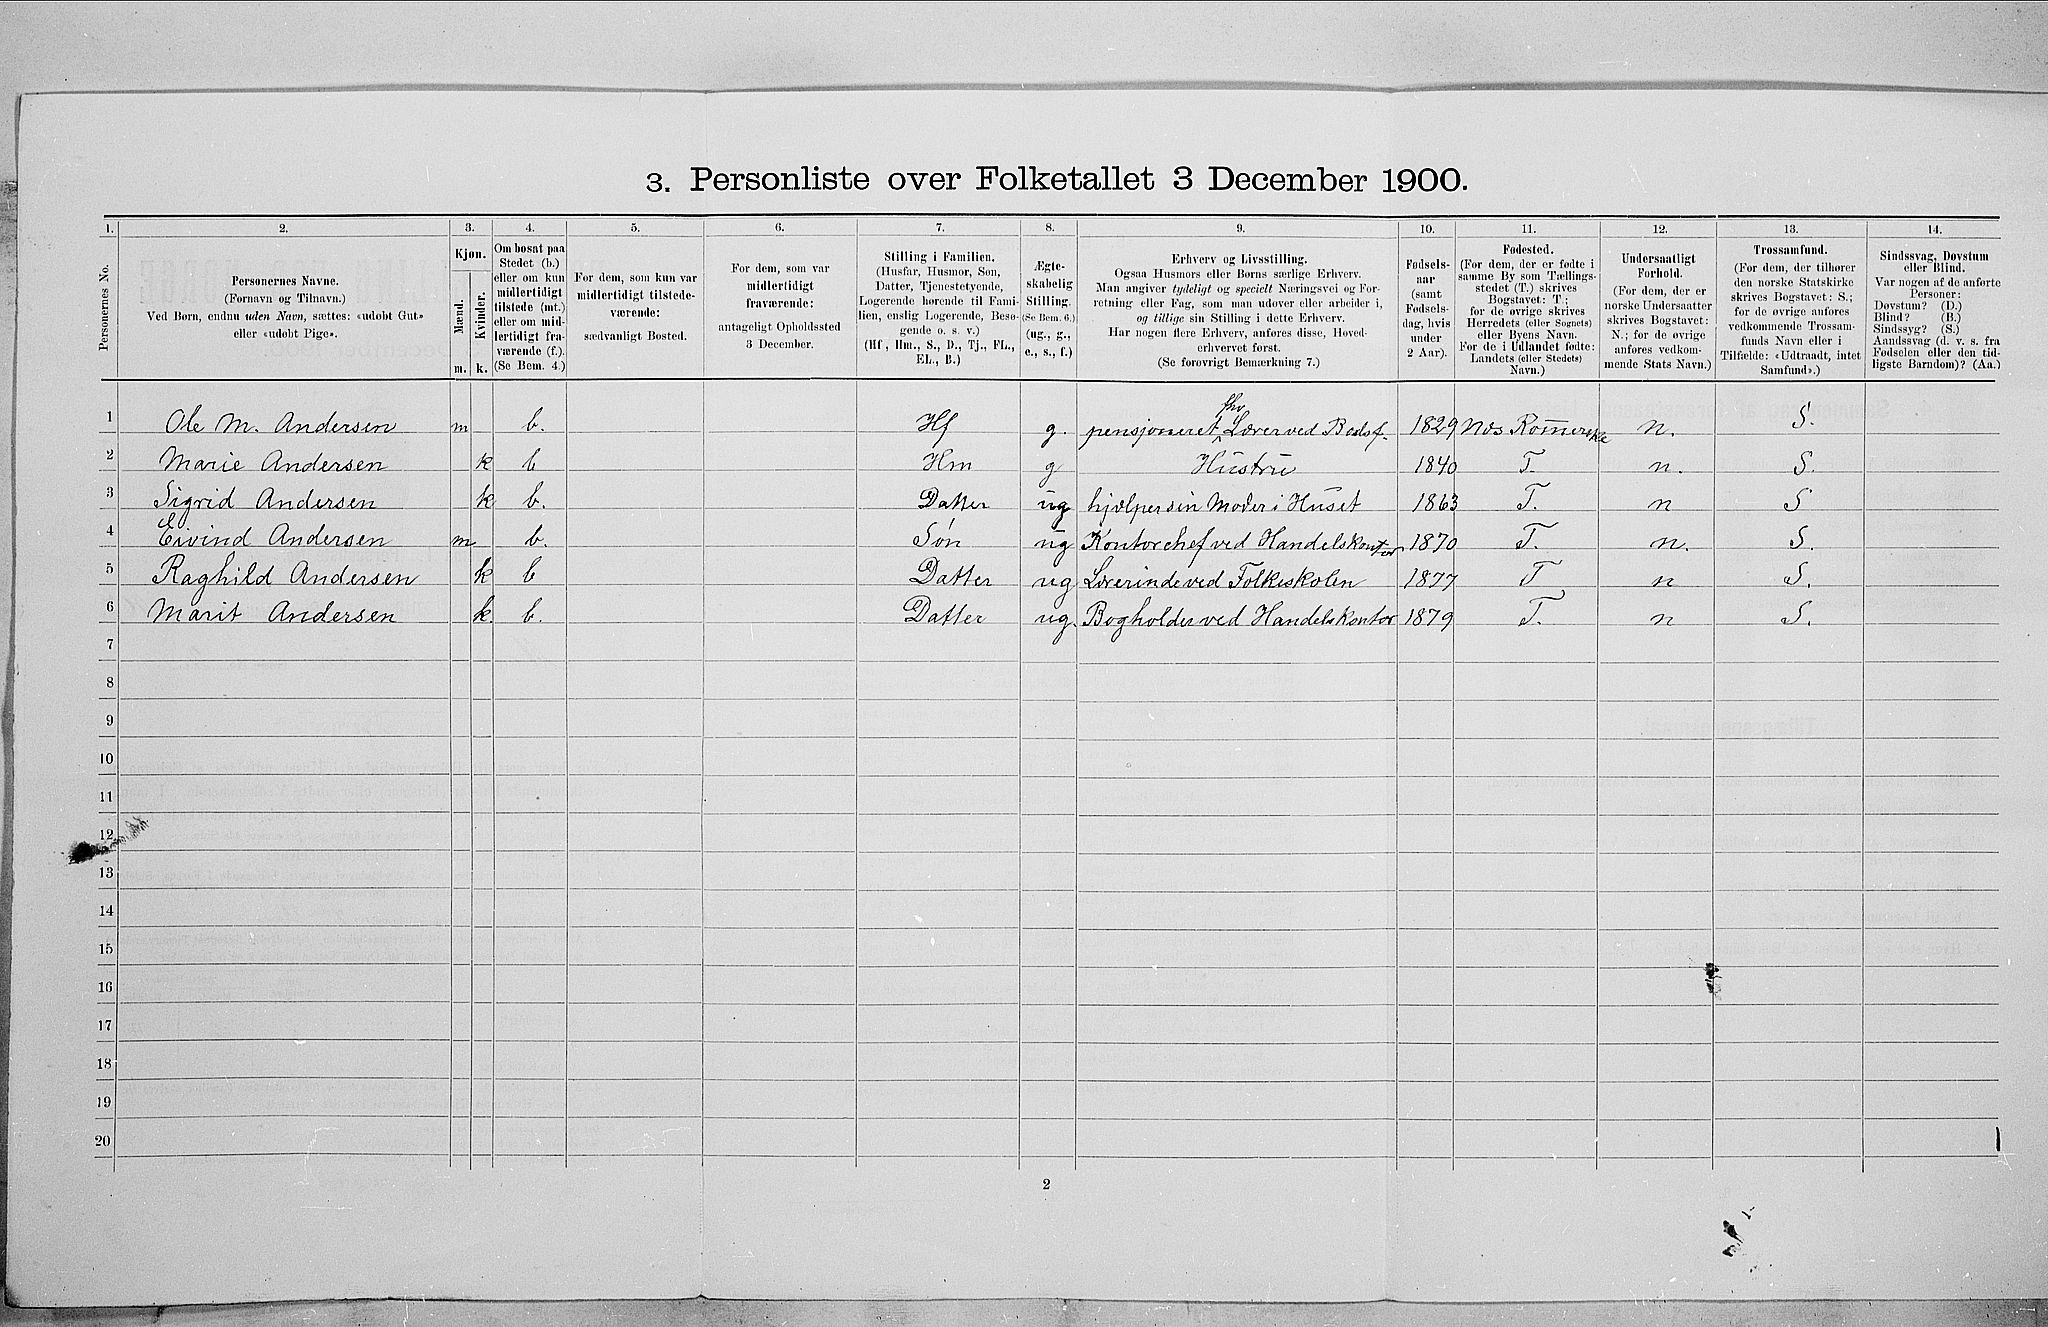 3. Personliste over Folketallet 3 December 1900.
1. 2. 3. 4. 5. 6. 7. 8. 9. 10. 11. 12. 13. 14.
Personernes No.
Personernes Navne.
(Fornavn og Tilnavn.)
Ved Børn, endnu uden Navn, sættes: «udøbt Gut»
eller «udøbt Pige».
Kjøn.
Mænd.
Kvinder.
m. k.
Om bosat paa
Stedet (b.)
eller om kun
midlertidigt
tilstede (mt.)
eller om mid-
lertidigt fra-
værende (f.).
(Se Bem. 4.)
For dem, som kun var
midlertidigt tilstede-
værende:
sædvanligt Bosted.
For dem, som var
midlertidigt
fraværende:
antageligt Opholdssted
3 December.
Stilling i Familien.
(Husfar, Husmor, Søn,
Datter, Tjenestetyende,
Logerende hørende til Fami-
lien, enslig Logerende, Besø-
gende o. s. v.)
(Hf., Hm., S., D., Tj., FL.,
EL., B.)
Ægte-
skabelig
Stilling.
(Se Bem. 6.)
(ug., g.,
e., s., f.)
Erhverv og Livsstilling.
Ogsaa Husmors eller Børns særlige Erhverv.
Man angiver tydeligt og specielt Næringsvei og For-
retning eller Fag, som man udover eller arbeider i,
og tillige sin Stilling i dette Erhverv.
Har nogen flere Erhverv, anføres disse, Hoved-
erhvervet først.
(Se forøvrigt Bemærkning 7.)
Fødsels-
aar
(samt
Fødsels-
dag, hvis
under
2 Aar).
Fødested.
(For dem, der er fødte i
samme By som Tællings-
stedet (T.) skrives
Bogstavet: T;
for de øvrige skrives
Herredets (eller Sognets)
eller Byens Navn.
For de i Udlandet fødte:
Landets (eller Stedets)
Navn.)
Undersaatligt
Forhold.
(For dem, der er
norske Undersaatter
skrives Bogstavet:
N.; for de øvrige
anføres vedkom-
mende Stats Navn.)
Trossamfund.
(For dem, der tilhører
den norske Statskirke
skrives Bogstavet: S.;
for de øvrige anføres
vedkommende Trossam-
funds Navn eller i
Tilfælde: «Udtraadt, intet
Samfund».)
Sindssvag, Døvstum
eller Blind.
Var nogen af de anførte
Personer:
Døvstum? (D.)
Blind? (B.)
Sindssyg? (S.)
Aandssvag (d. v. s. fra
Fødselen eller den tid-
ligste Barndom)? (Aa.)
1 Ole M. Andersen m b. Hf g. pensjoneret fhv Lærer ved Bodsf. 1829 Næs Romerike n. S.
2 Marie Andersen k b Hm g Hustru 1840 T. n. S.
3 Sigrid Andersen k b. Datter ug hjælper sin Moder i Huset 1863 T. n S
4 Eivind Andersen m b. Søn ug Kontorchef ved Handelskontor 1870 T. n. S.
5 Raghild Andersen k b Datter ug Lærerinde ved Folkeskolen 1877 T n S.
6 Marit Andersen k. b. Datter ug. Bogholder ved Handelskontor 1879 T. n S.
7
8
9
10
11
12
13
14
15
16
17
18
19
20
2